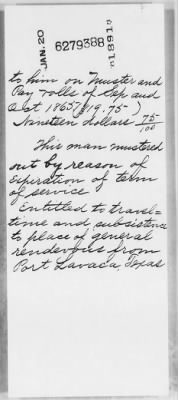 JAN. 20
6279388
1891
to him on Muster and
Pay rolls of Sep and
Oct 1865 ($19.75)
Nineteen dollars 75/100
This man mustered
out by reason of
expiration of term
of service
Entitled to travel=
time and subsistence
to place of general
rendezvous from
Port Lavaca, Texas